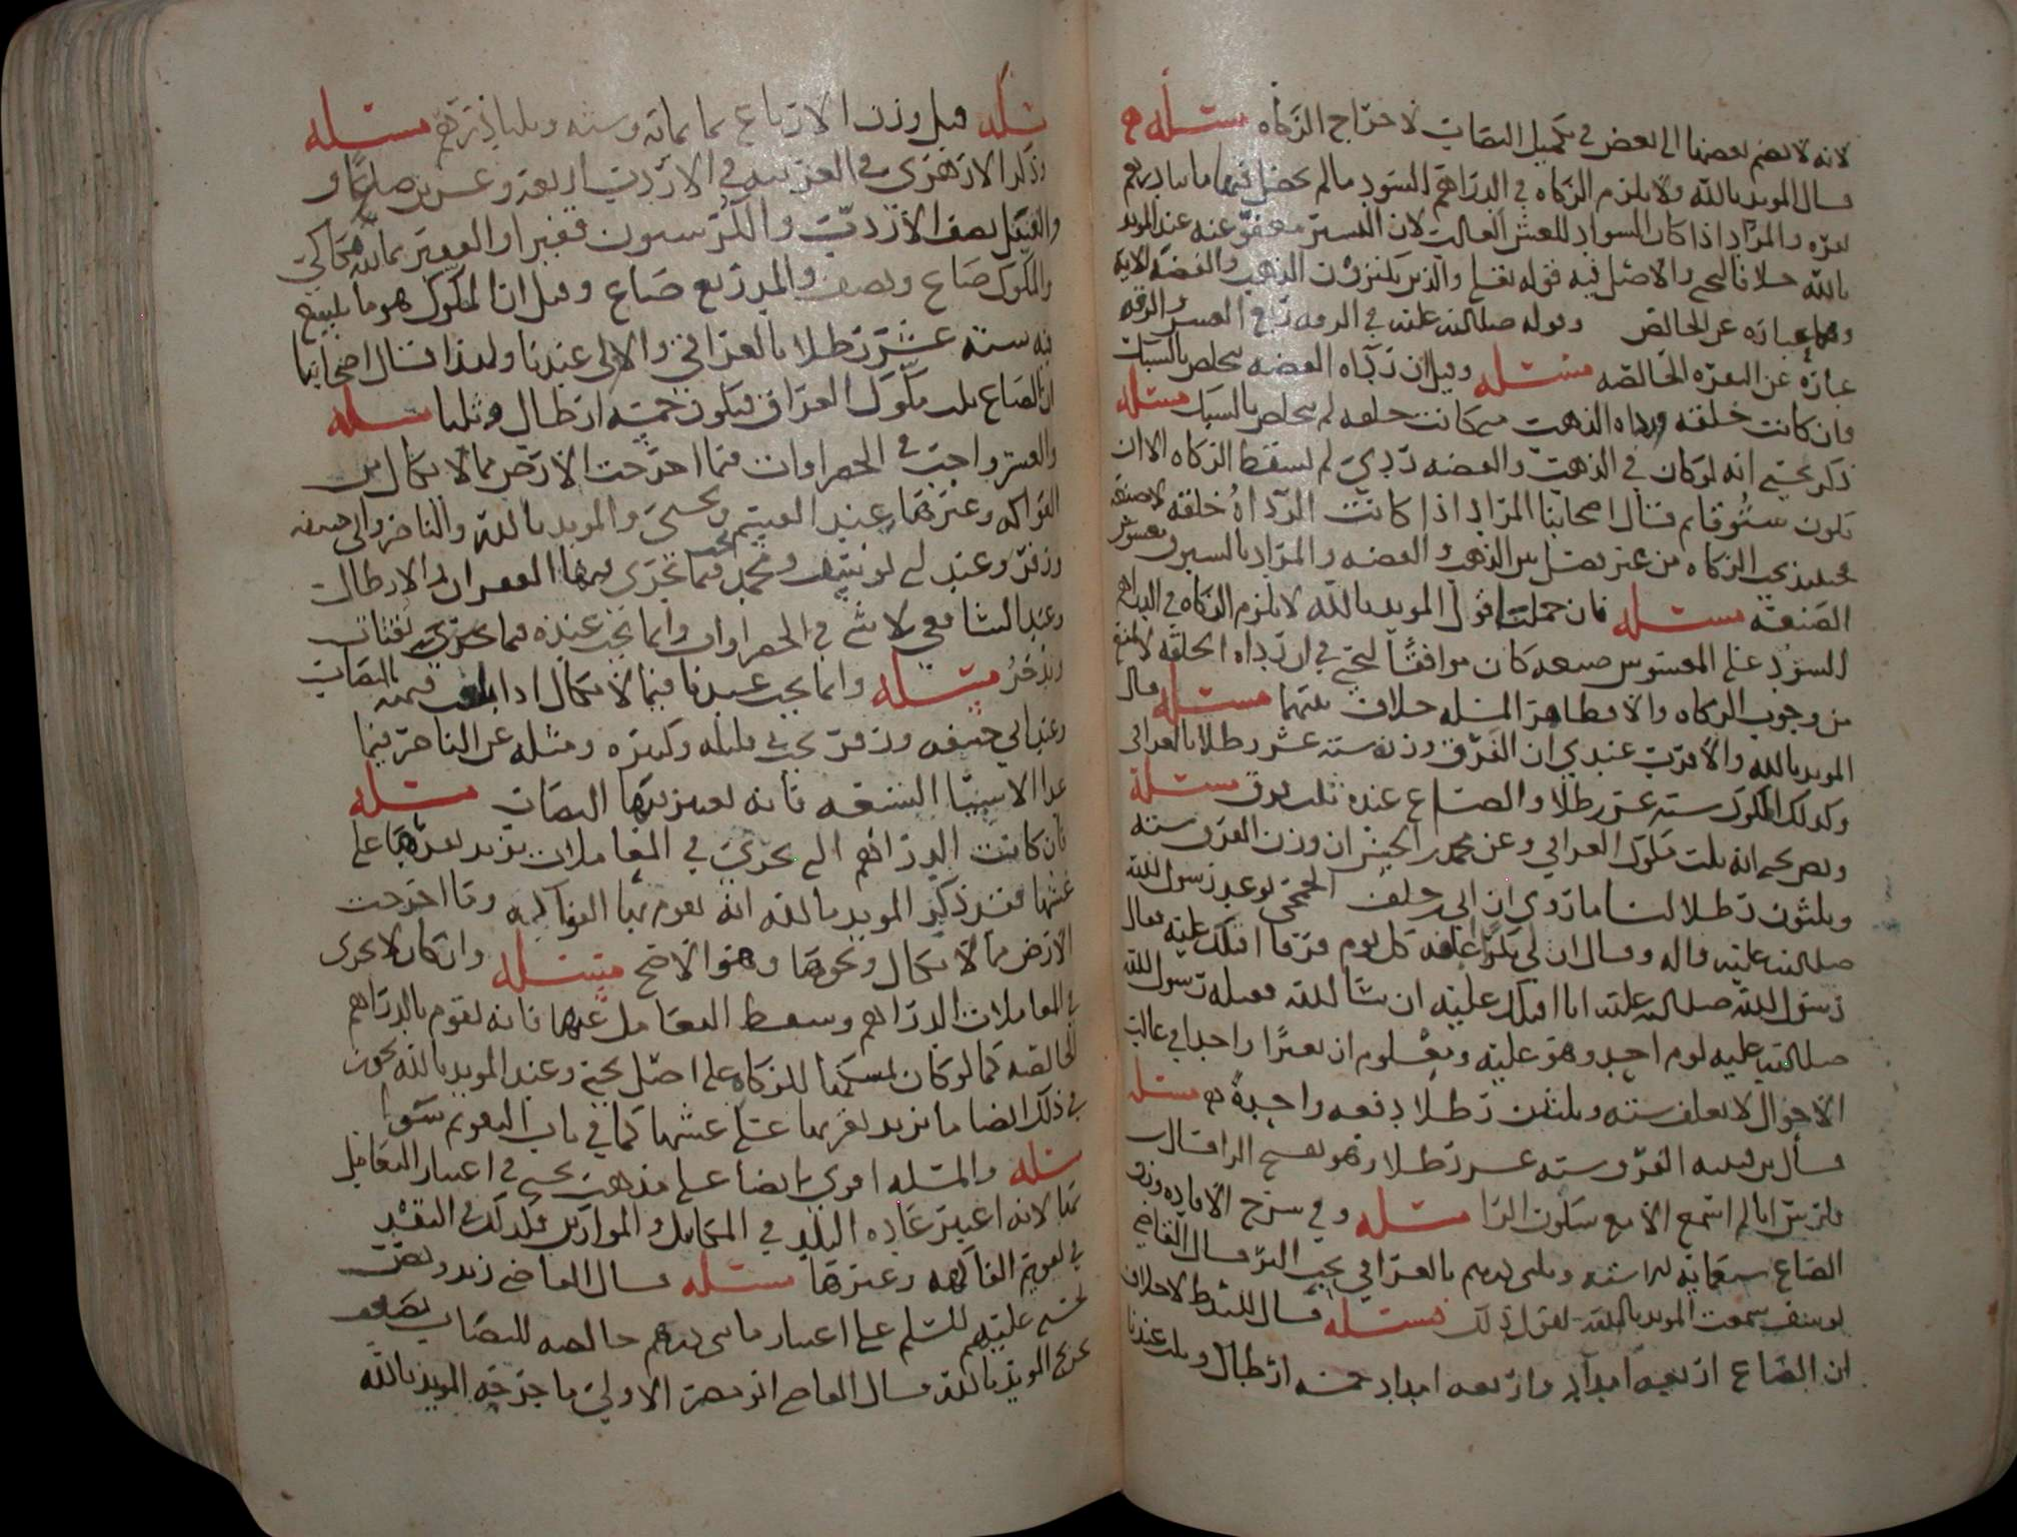 لانه لا يضم بعضها الى بعض في تكميل النصاب لاخراج الزكاه مسئله
قال المويد بالله ولا يلزم الزكاه في الدراهم السود مالم يحصل فيها مايتا درهم
نقره والمراد اذا كان السواد للغش الغالب لان اليسير معفو عنه عند المويد
بالله خلافا ليحيى والاصل فيه قوله تعلى والذين يكنزون الذهب والفضه الايه
وهما عباره عن الخالص وقوله صلى الله عليه في الرقه ربع العشر والرقه
عباره عن النقره الخالصه مسئله وقيل ان رداه الفضه تخلص بالسبك
وان كانت خلقته ورداه الذهب متى كانت خلقه لم تخلص بالسبك مسئله
ذكر يحيى انه لو كان في الذهب والفضه ردي لم تسقط الزكاه الا ان
يكون ستوقا ثم قال اصحابنا المراد اذا كانت الرداه خلقه لا صنعه
فحينيذ تجب الزكاه من غير فصل بين الذهب والفضه والمراد بالستوق مغشوش
الصنعه مسئله فان حملت قول المويد بالله لا يلزم الزكاه في الدراهم
السود على المغشوش صنعه كان موافقا ليحيى في ان رداه الخلقه لا تمنع
من وجوب الزكاه والا فظاهر المسله خلاف بينهما مسئله قال
المويد بالله والاقرب عندي ان الفرق وزنه سته عشر رطلا بالعراقي
وكذلك المكوك سته عشر رطلا والصاع عنده ثلث فرق مسئله
ونص يحيى انه ثلث مكوك العراقي وعن محمد بن الحسن ان وزن الفرق سته
وثلثون رطلا لنا ما روي ان ابي بن خلف الجمحي توعد رسول الله
صلى الله عليه واله وقال ان لي بكرا اعلفه كل يوم فرقا اقتلك عليه فقال
رسول الله صلى الله عليه انا اقتلك عليه ان شا الله فقتله رسول الله
صلى الله عليه يوم احد وهو عليه ومعلوم ان بعيرا واحدا في غالب
الاحوال لا يعلف سته وثلثين رطلا دفعه واحده مسئله
قال بن قتيبه الفرق سته عشر رطلا وهو بفتح الرا قال
ولم اسمع الامع سكون الرا مسئله وفي شرح الافاده وزن
الصاع وثلثي درهم بالعراقي بحب البر قال القاضي
يوسف سمعت المويد بالله يقول ذلك مسئله قال للشرط لا خلاف
ان الصاع اربعه امداد واربعه امداد خمسه ارطال وثلث عندنا
مسئله قيل وزن الارباع ثما ثمايه وسته وثلثا درهم مسئله
وذكر الازهري في العربيه في الاردب اربعه وعشرين صاعا و
والقنقل نصف الاردب والكر ستون قفيزا والقفيز ثمانيه مكاكي
والمكوك صاع ونصف والمد ربع صاع وقيل ان المكوك هو ما يبلغ
فيه سته عشر رطلا بالعراقي والاولى عندنا ولهذا قال اصحابنا
ان الصاع ثلث مكوك العراق فيكون خمسه ارطال وثلثا مسئله
والعشر واجب في الخضراوات فيما اخرجت الارض مما لا يكال من
الفواكه وغيرها عند القسم ويحيى والمويد بالله والناصر وابي حنيفه
وزفر وعند ابي يوسف ومحمد تجب فيما يجري فيهما القفيزان والارطال
وعند الشافعي لا شي في الخضراوات وانما تجب عنده فيما يجري يقتات
ويدخر مسئله وانما تجب عندنا فيما لا يكال اذا بلغت قيمته النصاب
وعند ابي حنيفه وزفر تجب في قليله وكثيره ومثله عن الناصر فيما
عدا الاشيا التسعه فانه يعتبر فيها النصاب مسئله
فان كانت الدراهم التي تجري في المعاملات يزيد نقرتها على
غشها فقد ذكر المويد بالله انه يقوم بها الفواكه وما اخرجت
الارض مما لا يكال ونحوها وهو الاصح مسئله وان كان لا يجري
في المعاملات الدراهم وسقط التعامل عنها فانه يقوم بالدراهم
الخالصه كما لو كان مستهلكا للزكاه على اصل يحيى وعند المويد بالله يجوز
في ذلك ايضا ما يزيد نقرتها على غشها كما في باب التقويم سوا
مسئله والمسئله اقوى ايضا على مذهب يحيى في اعتبار التعامل
بها لانه اعتبر عاده البلد في المكاييل والموازين فكذلك في النقد
في تقويم الفاكهه وغيرها مسئله قال القاضي زيد ونصت
يحيى عليهم السلم على اعتبار مايتي درهم خالصه للنصاب
تخريج المويد بالله قال القاضي الاولى ما خرجه المويد بالله